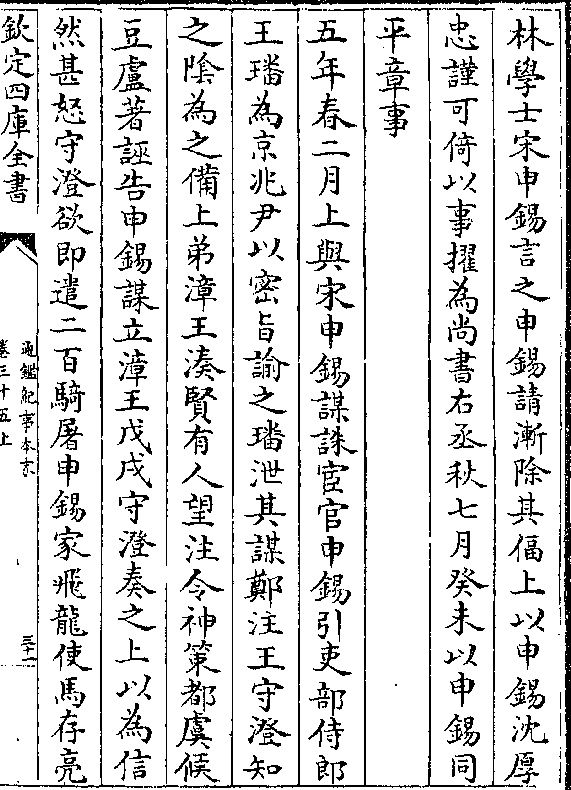 林學士宋申錫言之申錫請漸除其偪上以申錫沈厚
忠謹可倚以事擢為尚書右丞秋七月癸未以申錫同
平章事
五年春二月上與宋申錫謀誅宦官申錫引吏部侍郎
王璠為京兆尹以密旨諭之璠泄其謀鄭注王守澄知
之隂為之備上弟漳王湊賢有人望注令神策都虞候
豆盧著誣告申錫謀立漳王戊戌守澄奏之上以為信
然甚怒守澄欲即遣二百騎屠申錫家飛龍使馬存亮
欽定四庫全書
通鑑紀事本末
卷三十五上
三十一